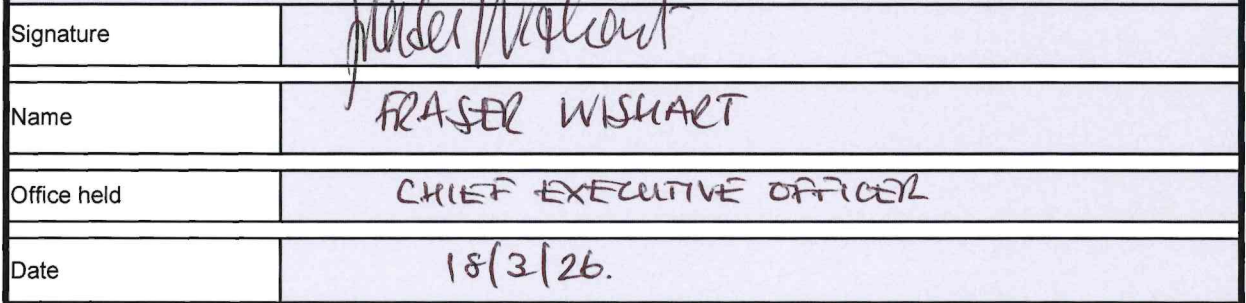 Signature
Name FRASER WISHART
Office held CHIEF EXECUTIVE OFFICER
Date 18/3/26.